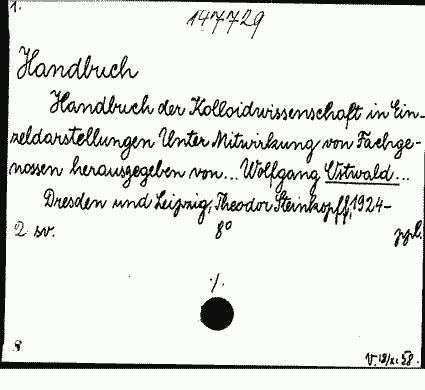 1.
147729
Handbuch
Handbuch der Kolloidwissenschaft in Ein-
zeldarstellungen Unter Mitwirkung von Fachge-
nossen herausgegeben von... Wolfgang Ostwald...
Dresden und Leipzig, Theodor Steinkopff, 1924-
2 sv. 8° ppl.
./.
8
V. 18/X. 58.